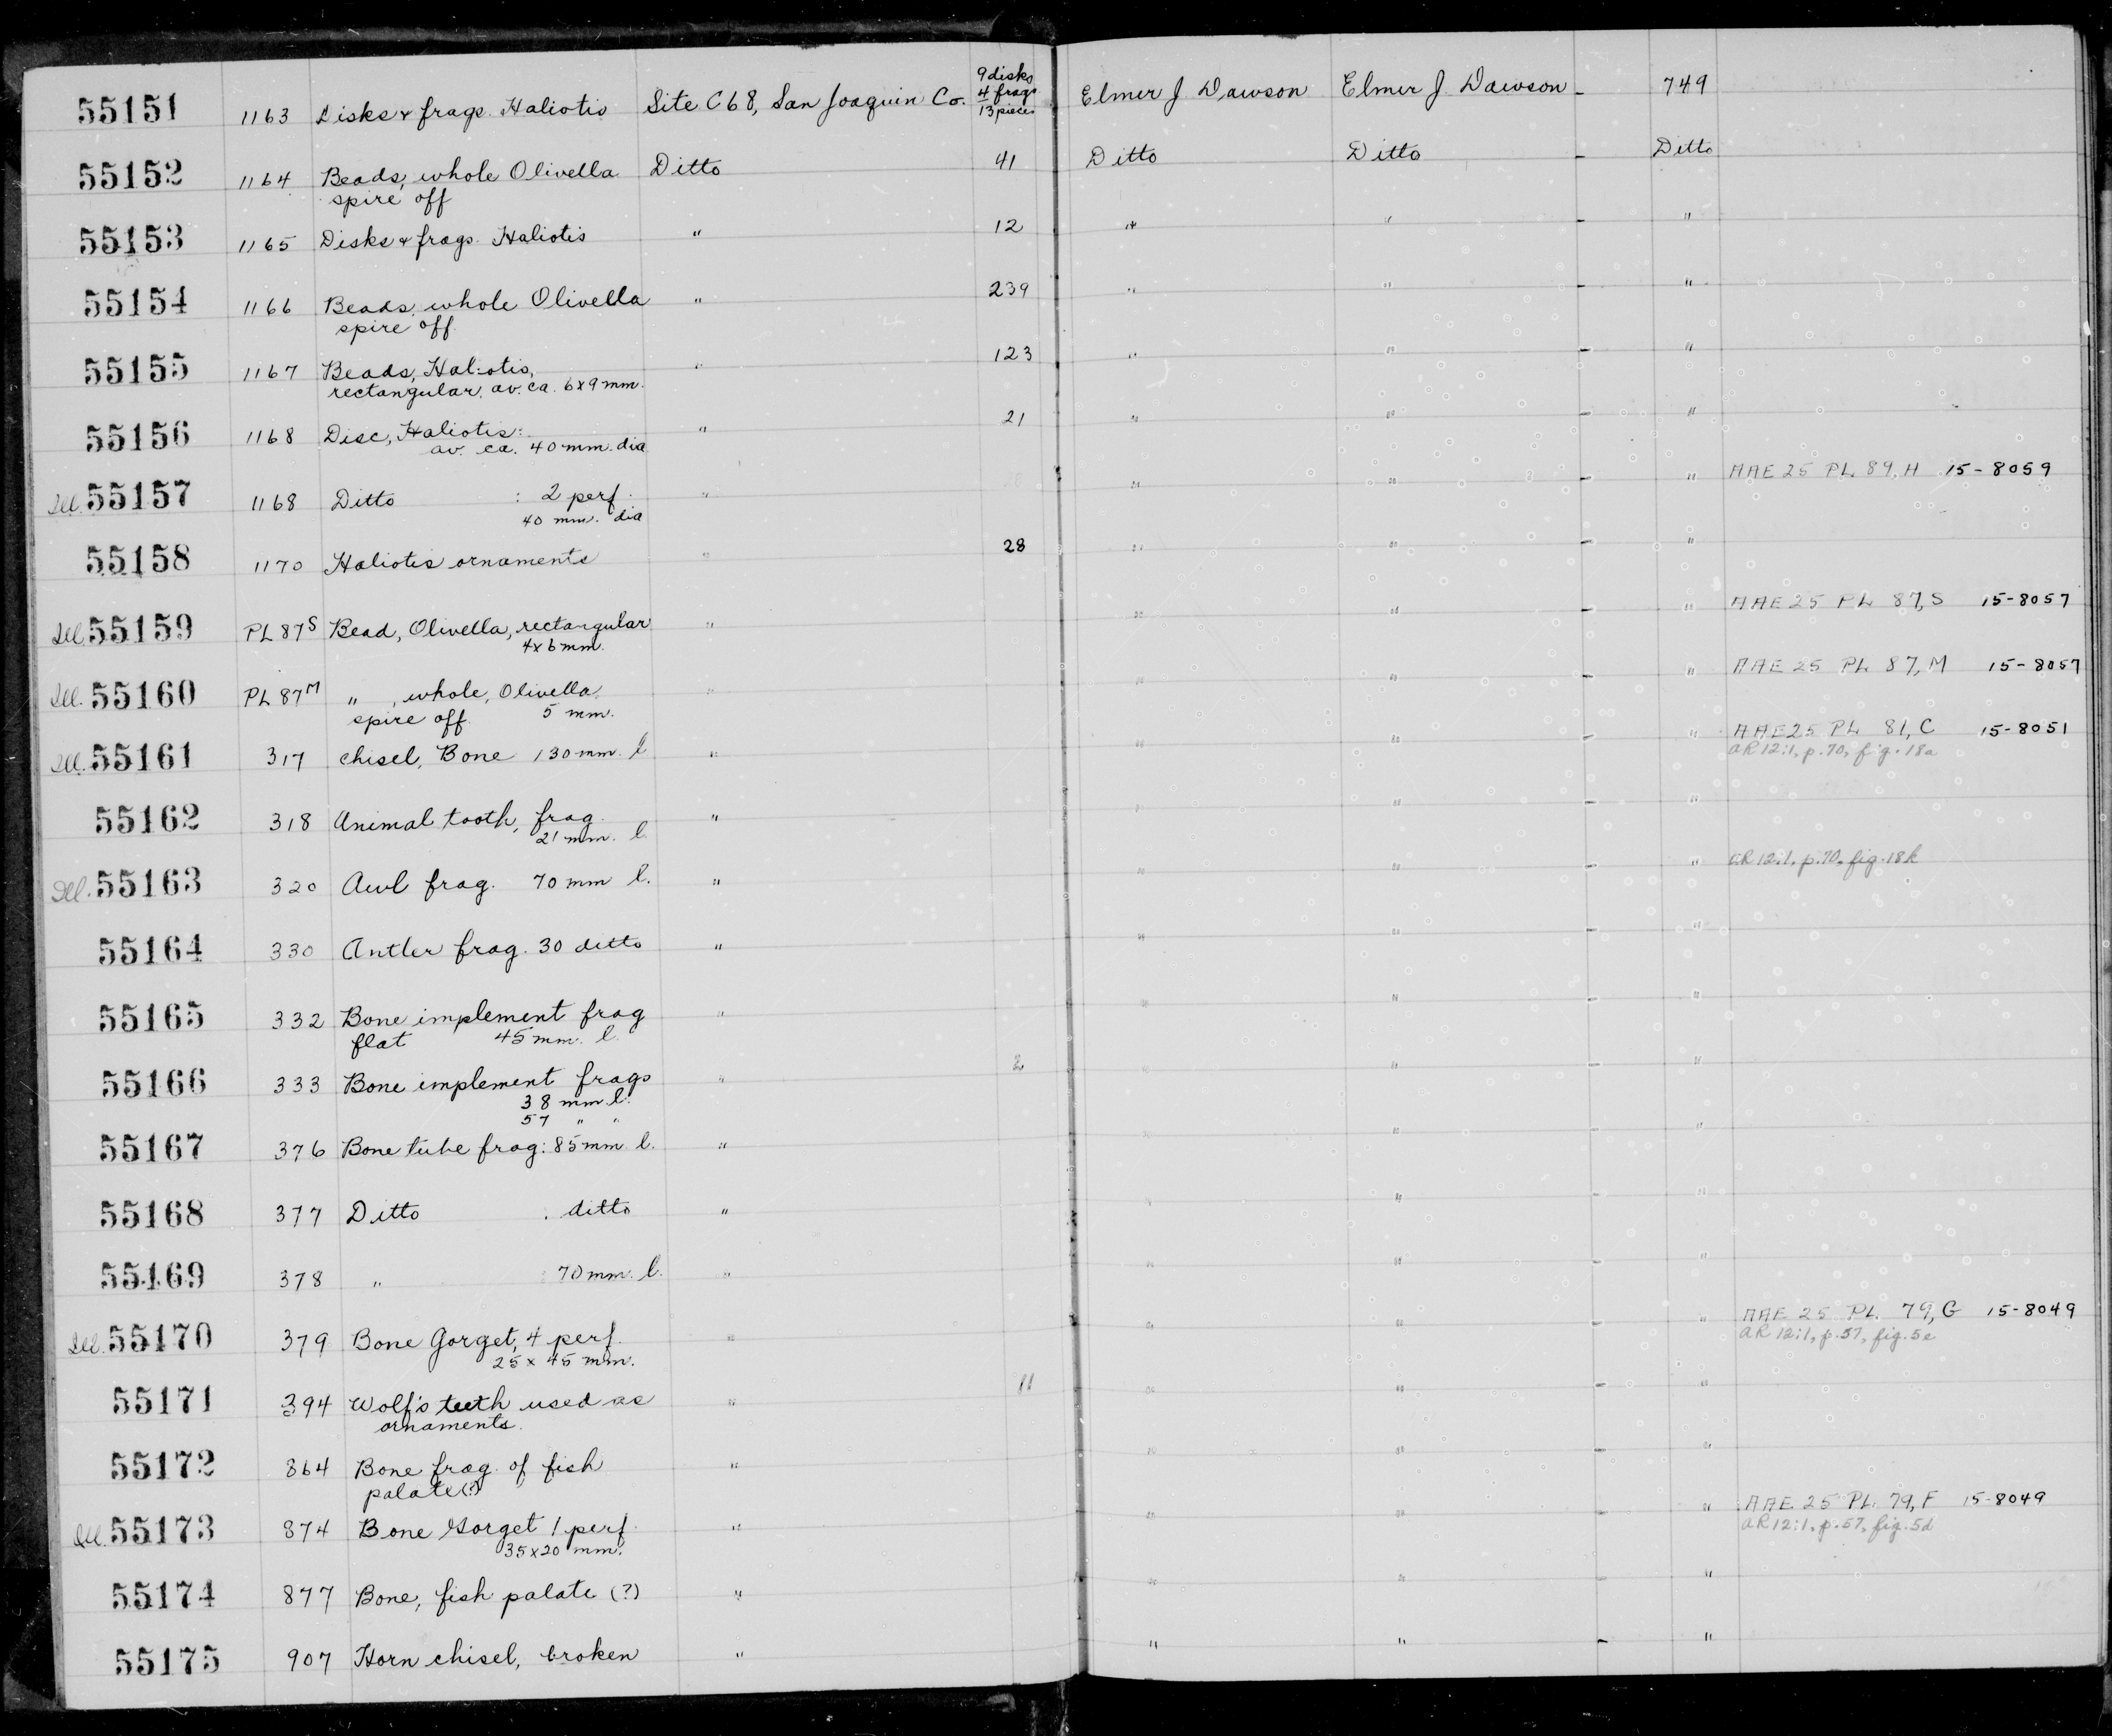 55151 1163 Disks & frags. Haliotis Site C68, San Joaquin Co. 9 disks 4 frags 13 pieces Elmer J Dawson Elmer J. Dawson - 749
55152 1164 Beads, whole Olivella Ditto 41 Ditto Ditto - Ditto
spire off
55153 1165 Disks & frags. Haliotis " 12 " " - "
55154 1166 Beads, whole Olivella " 239 " " - "
spire off
55155 1167 Beads, Haliotis, " 123 " " - "
rectangular, av. ca. 6x9 mm.
55156 1168 Disc, Haliotis: " 21 " " - "
av. ca. 40 mm. dia
Ill. 55157 1168 Ditto : 2 perf. " " " - " AAE 25 PL 89, H 15-8059
40 mm. dia
55158 1170 Haliotis ornaments " 28 " " - "
Ill. 55159 PL 87S Bead, Olivella, rectangular " " " - " AAE 25 PL 87, S 15-8057
4x6 mm.
Ill. 55160 PL 87M " , whole, Olivella " " " - " AAE 25 PL 87, M 15-8057
spire off 5 mm.
Ill. 55161 317 chisel, Bone 130 mm. l " " " - " AAE 25 PL 81, C 15-8051
AR 12:1, p. 70, fig. 18a
55162 318 Animal tooth, frag. " " " - "
21 mm. l.
Ill. 55163 320 Awl frag. 70 mm l. " " " - " AR 12:1, p. 70, fig. 18k
55164 330 Antler frag. 30 ditto " " " - "
55165 332 Bone implement frag " " " - "
flat 45 mm. l.
55166 333 Bone implement frags " 2 " " - "
38 mm l.
57 " "
55167 376 Bone tube frag: 85 mm l. " " " - "
55168 377 Ditto . ditto " " " - "
55169 378 " : 70 mm. l. " " " - "
Ill. 55170 379 Bone Gorget, 4 perf. " " " - " AAE 25 PL. 79, G 15-8049
25 x 45 mm. AR 12:1, p. 57, fig. 5e
55171 394 Wolf's teeth used as " 11 " " - "
ornaments.
55172 864 Bone frag. of fish " " " - "
palate (?)
Ill. 55173 874 Bone Gorget 1 perf. " " " - " AAE 25 PL. 79, F 15-8049
35x20 mm. AR 12:1, p. 57, fig. 5d
55174 877 Bone, fish palate (?) " " " - "
55175 907 Horn chisel, broken " " " - "